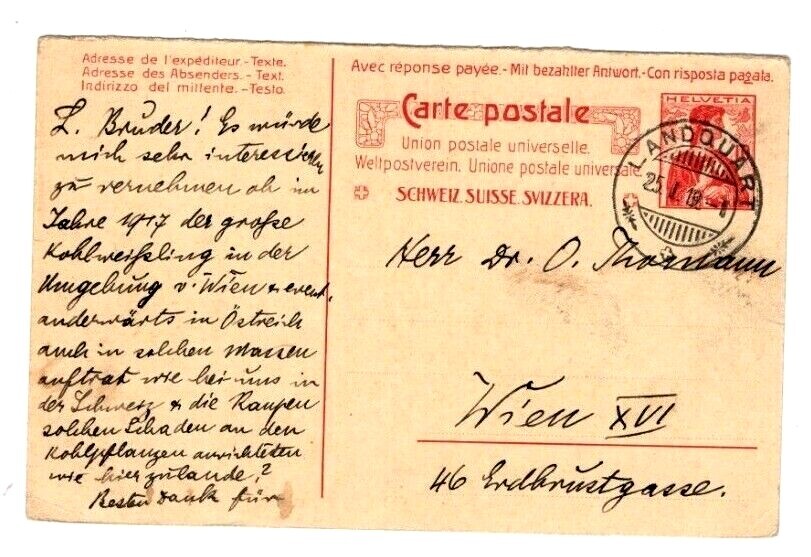 Adresse de l'expéditeur.-Texte.
Adresse des Absenders.-Text.
Indirizzo del mittente.-Testo.
L. Bruder! Es würde
mich sehr interessieren
zu vernehmen ob im
Jahre 1917 der große
Kohlweißling in der
Umgebung v. Wien & event.
anderwärts in Östreich
auch in solchen Massen
auftrat wie bei uns in
der Schweiz & die Raupen
solchen Schaden an den
Kohlpflanzen anrichteten
wie hierzulande?
Besten Dank für
Avec réponse payée.-Mit bezahlter Antwort.-Con risposta pagata.
Carte postale
Union postale universelle.
Weltpostverein. Unione postale universale.
SCHWEIZ. SUISSE. SVIZZERA.
HELVETIA
LANDQUART
25. I. 19.
Herr Dr. O. Thomann
Wien XVI
46 Erdbrustgasse.